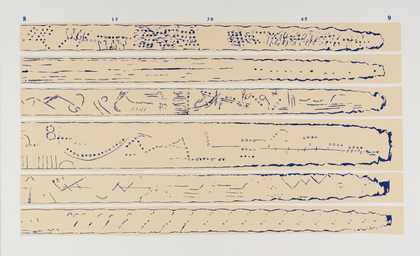 8 15 30 45 9